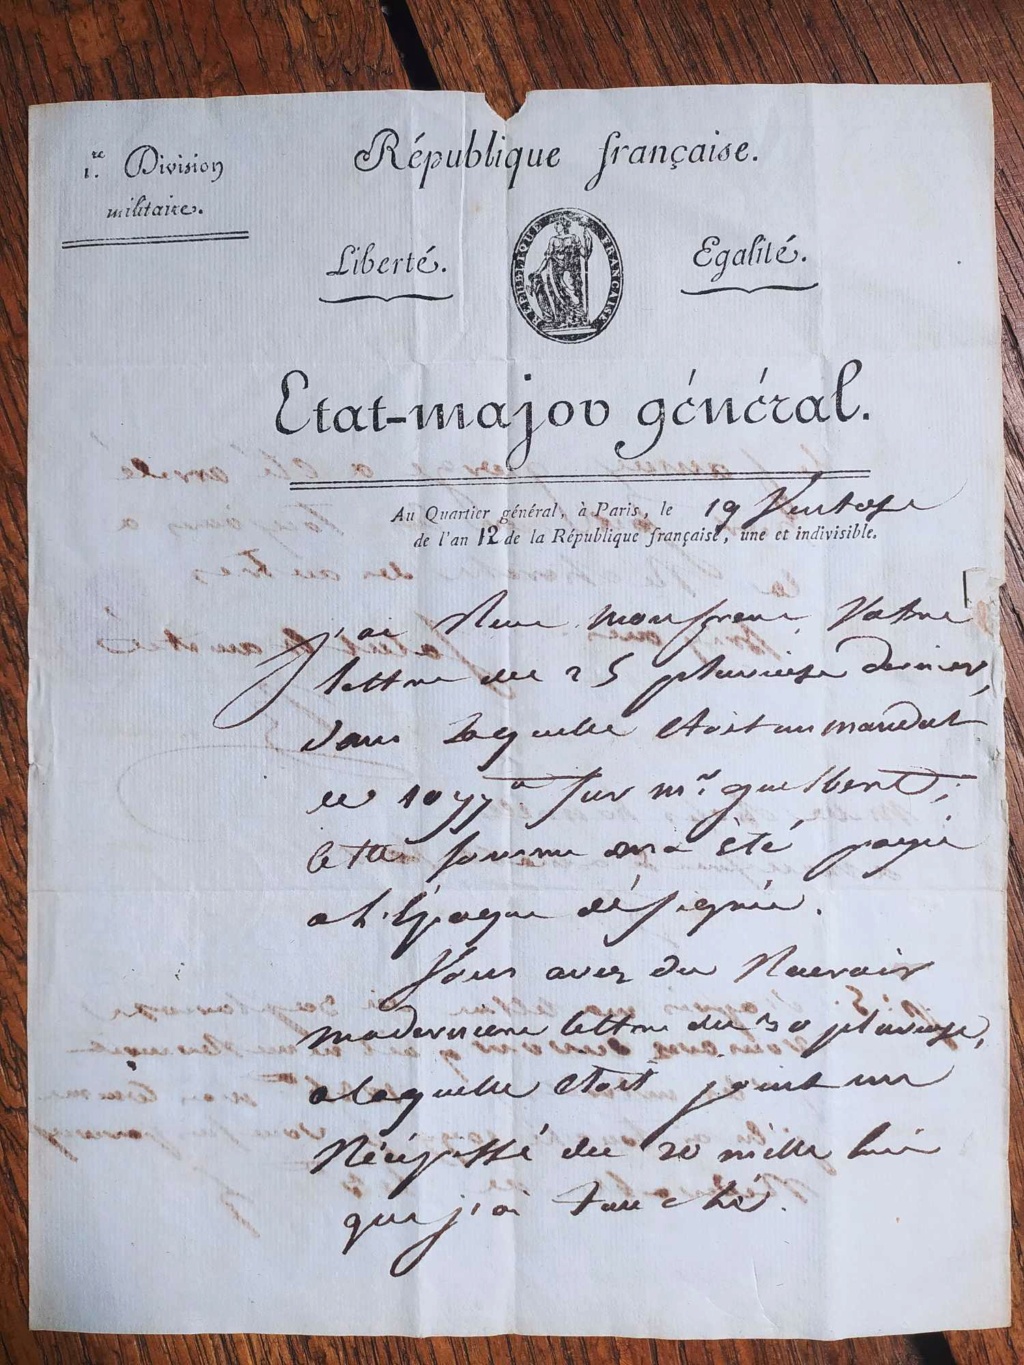 1.re Division
militaire.
République française.
Liberté.
RÉPUBLIQUE FRANÇAISE
Egalité.
Etat-major général.
Au Quartier général, à Paris, le 19 Ventose
de l'an 12 de la République française, une et indivisible.
j'ai Recu mon frere, Votre
lettre du 25 pluviose dernier,
dans laquelle etoit un mandat
de 1077 sur mr. guelbert,
cette somme m'a été payée
a l'Epoque désignée.
Vous avez du Recevoir
ma derniere lettre du 30 pluviose,
a laquelle etoit joint un
Récépissé de 20 mille
que j'ai touché.